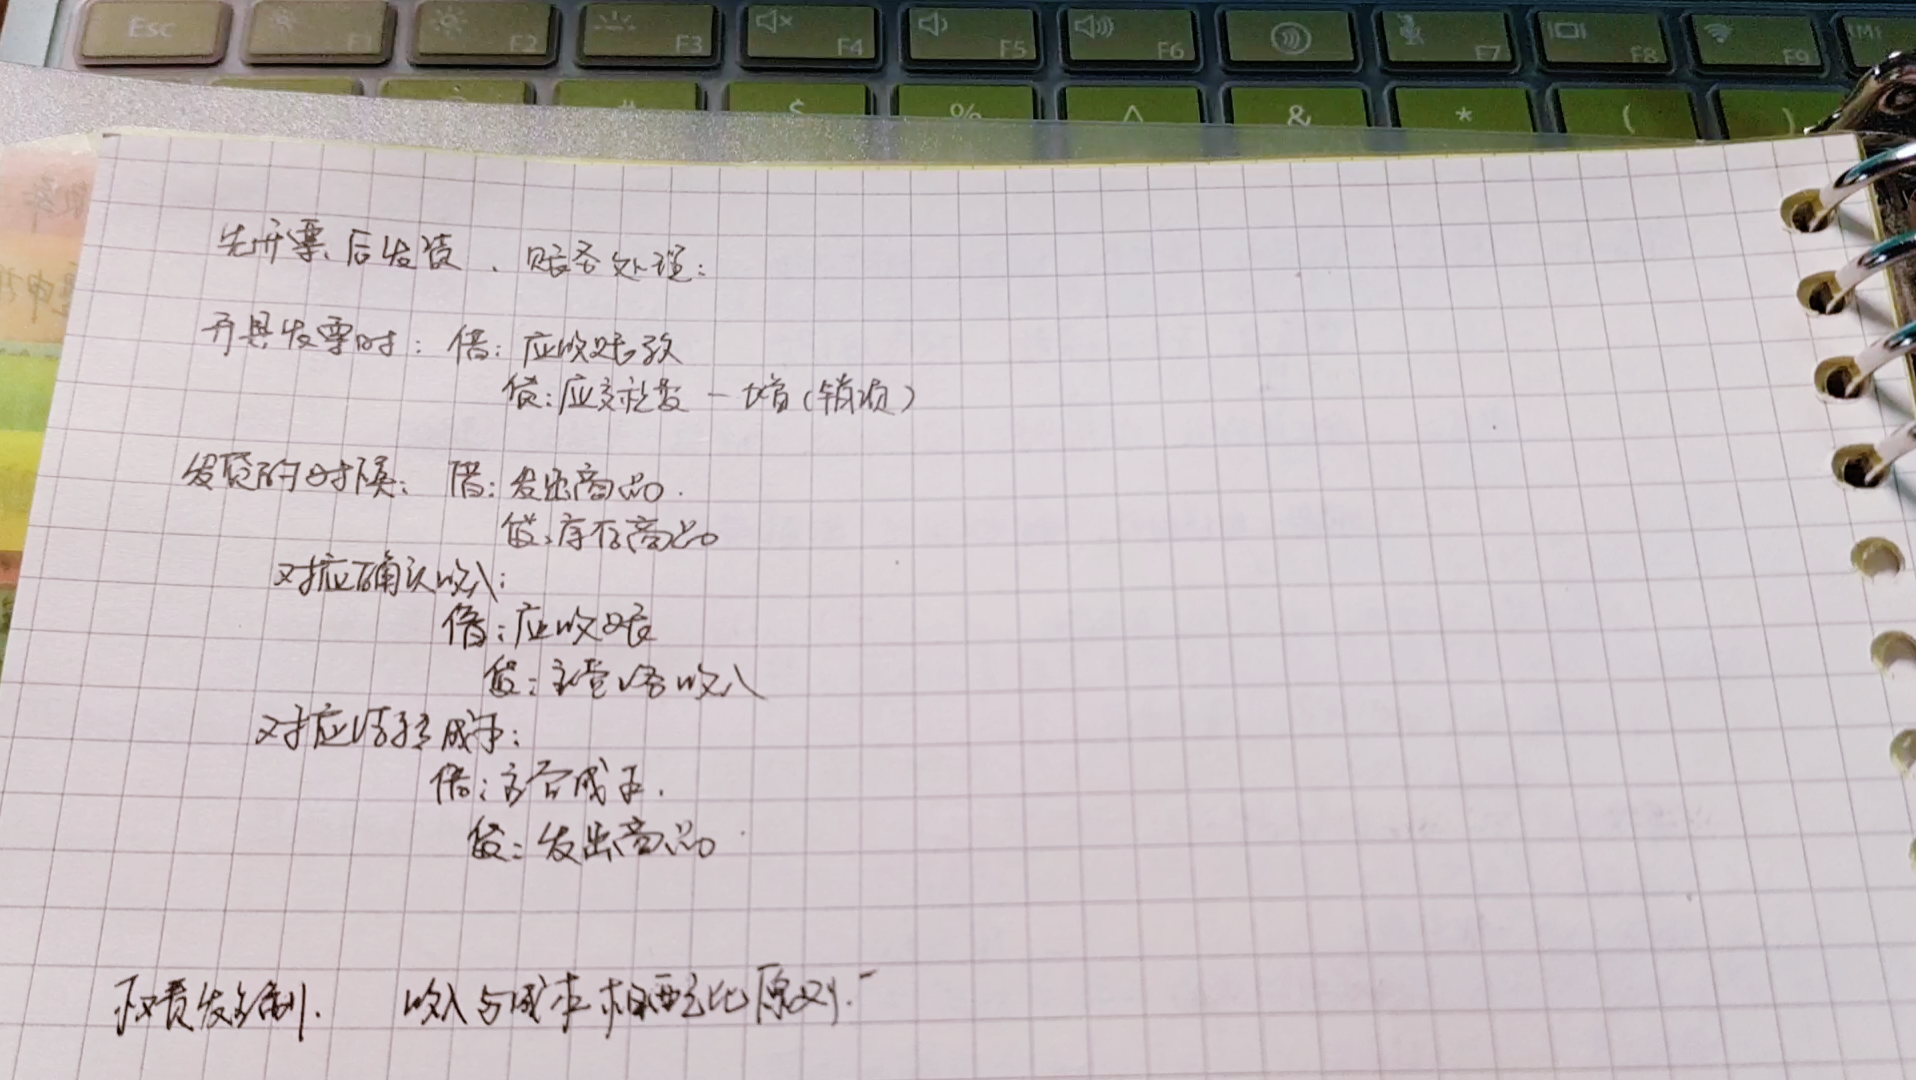 Esc F1 F2 F3 F4 F5 F6 F7 F8 F9
# $ % ^ & * ( )
先开票后发货,账务处理:
开具发票时:借:应收账款
贷:应交税费-增(销项)
发货的时候:借:发出商品.
贷:库存商品
对应确认收入:
借:应收账
贷:主营业务收入
对应结转成本:
借:主营成本.
贷:发出商品.
权责发生制. 收入与成本相配比原则.